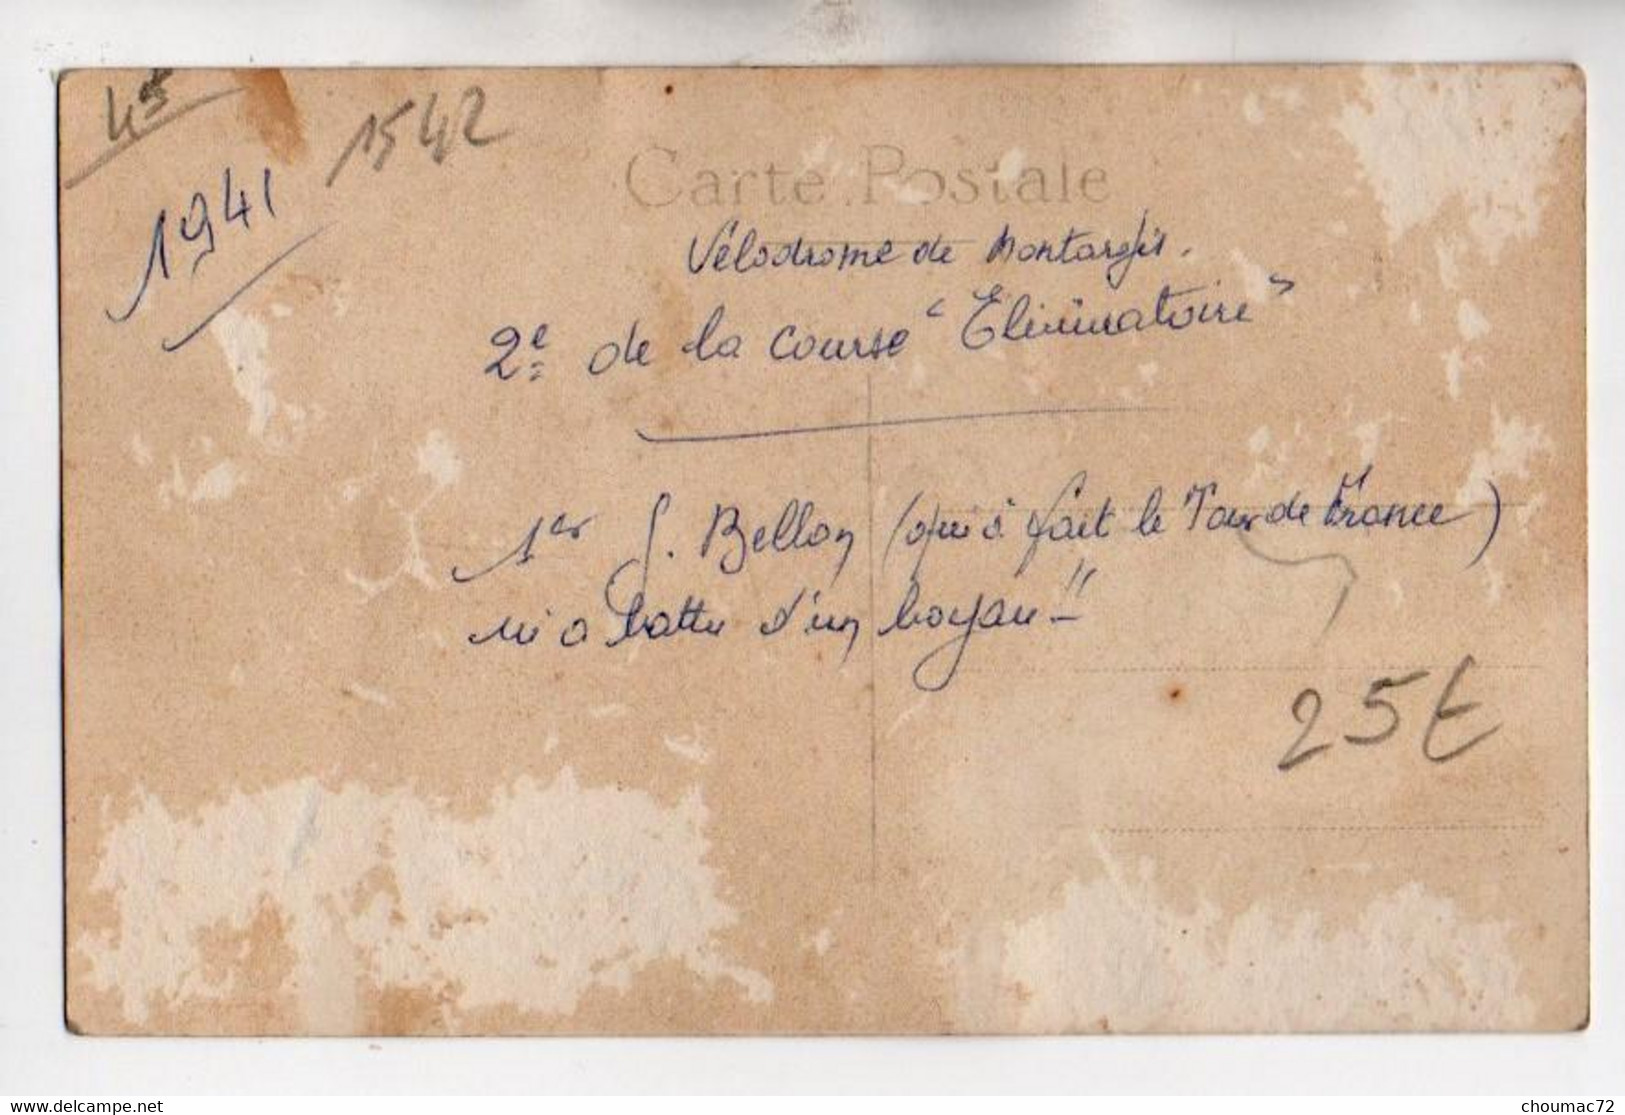 45
1542
1941
Carte Postale
Vélodrome de Montargis.
2e de la course "Eliminatoire"
1er G. Bellon (qui à fait le Tour de France)
m'a battu d'un boyau"-
25€
delcampe.net
choumac72